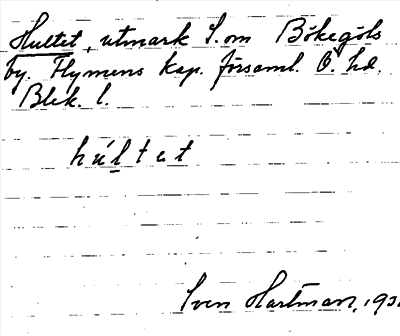 Hultet, utmark S. om Bökegöls
by. Flymens kap. församl. Ö. hd.
Blek. l.
hú̱ltet
Sven Hartman, 193